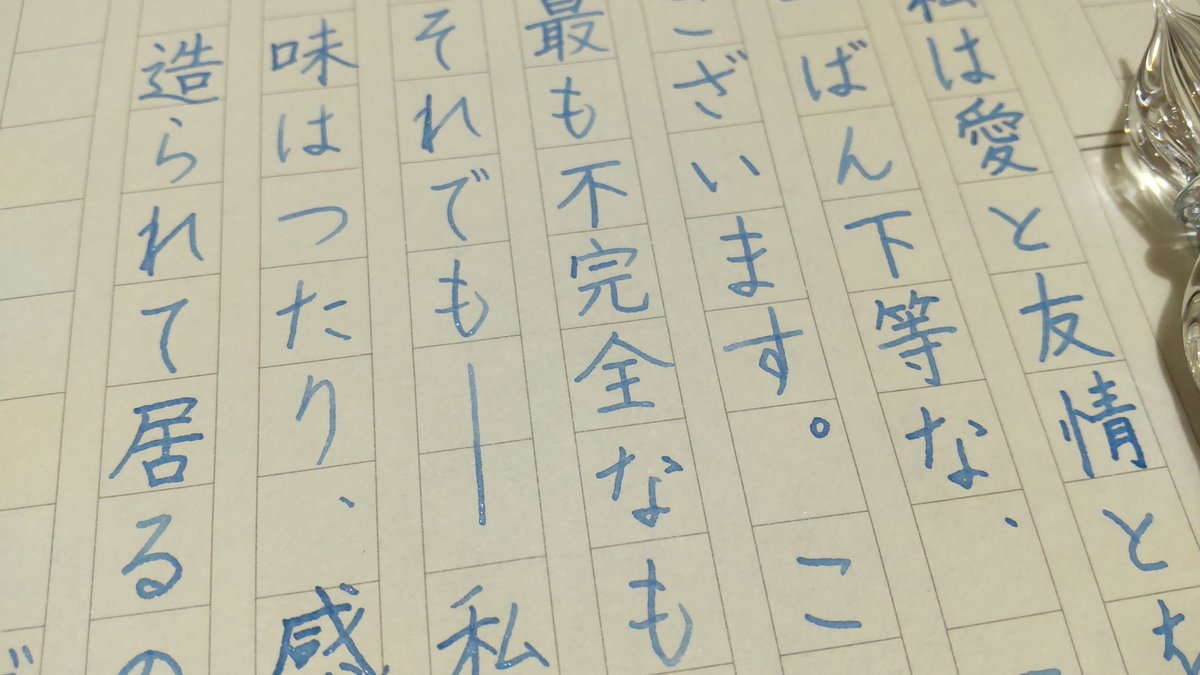 私は愛と友情と
ばん下等な、
ございます。こ
最も不完全なも
それでも―私
味はつたり、感
造られて居るの